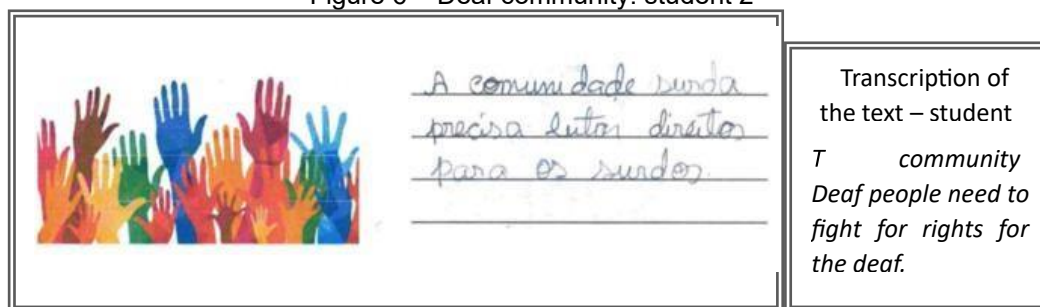 Figure 6 – Deaf community: student 2
A comunidade surda
precisa lutar direitos
para os surdos.
Transcription of
the text – student
T community
Deaf people need to
fight for rights for
the deaf.